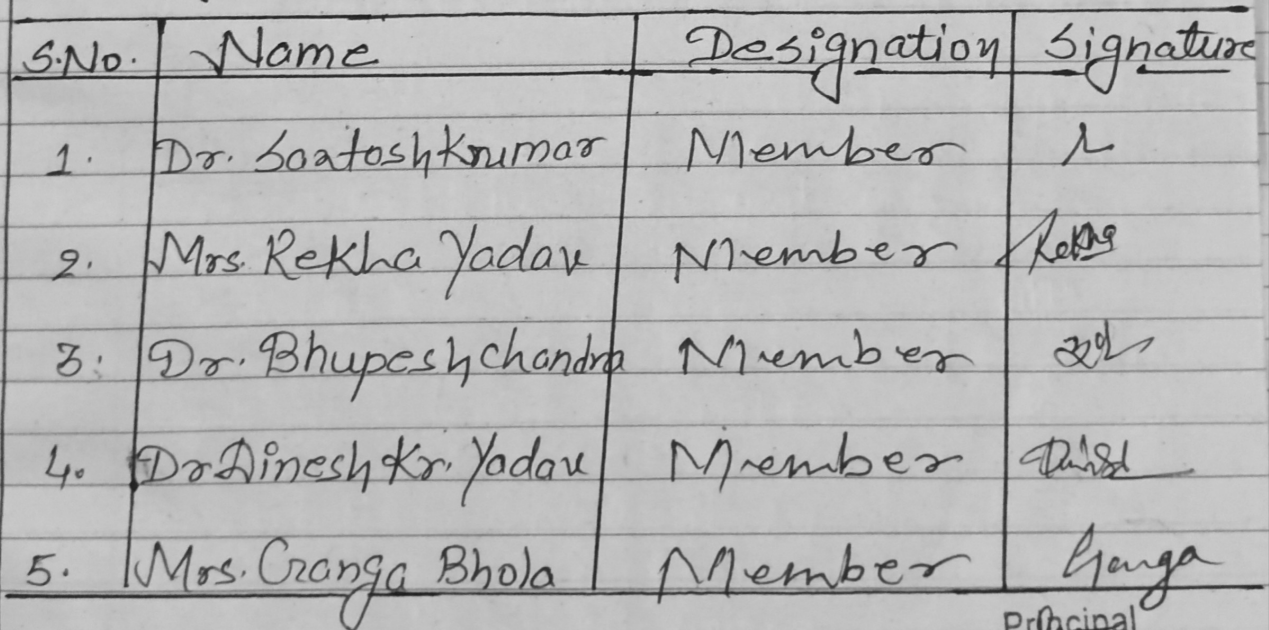 S.No. Name Designation Signature
1. Dr. Santosh Kumar Member
2. Mrs. Rekha Yadav Member Rekha
3. Dr. Bhupesh Chandra Member
4. Dr Dinesh Kr. Yadav Member
5. Mrs. Ganga Bhola Member Ganga
Principal